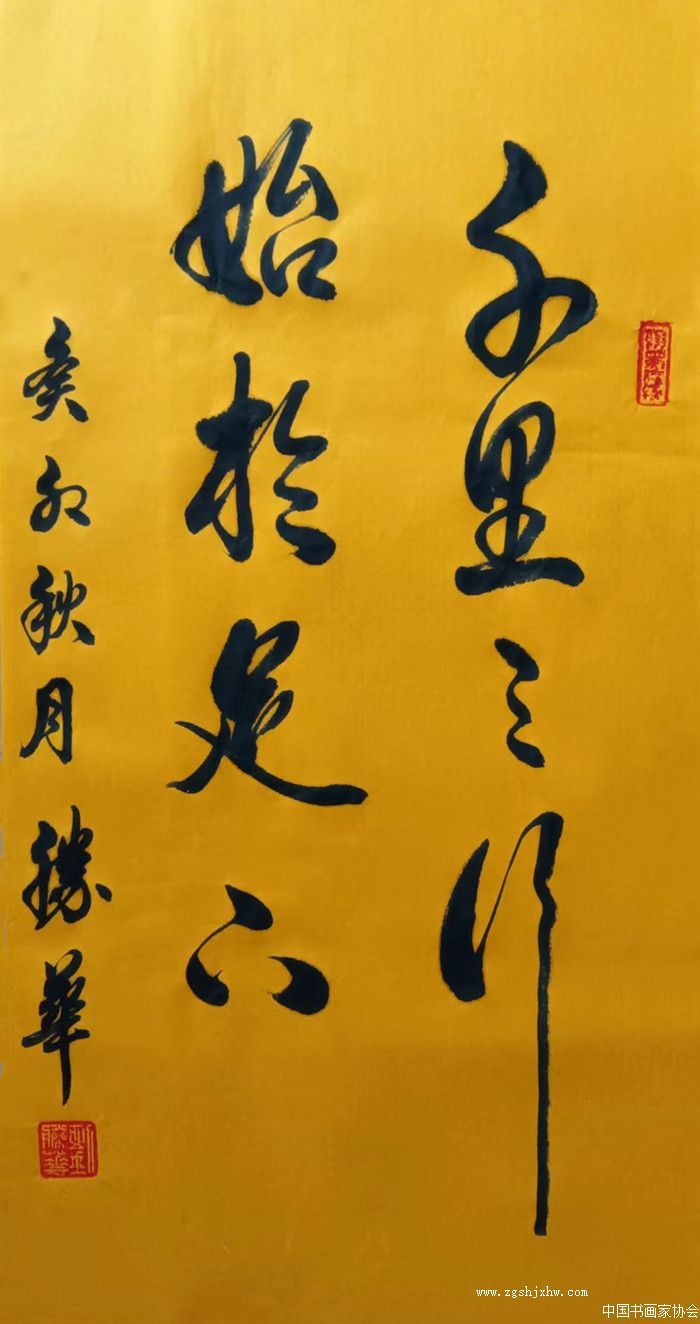 千里之行
始於足下
癸卯秋月 勝華
www.zgshjxhw.com
中国书画家协会